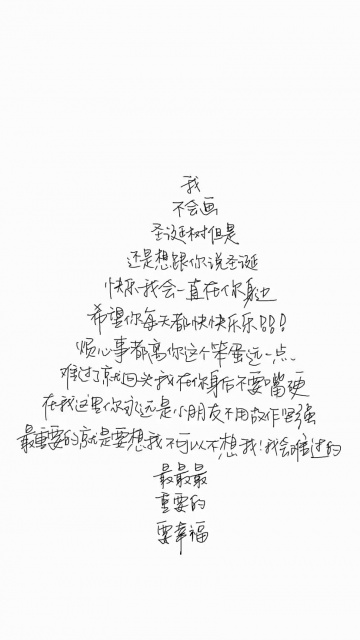 我
不会画
圣诞树但是
还是想跟你说圣诞
快乐我会一直在你身边
希望你每天都快快乐乐!!!
烦心事都离你这个笨蛋远一点
难过了就回头我在你身后不要嘴硬
在我这里你永远是小朋友不用故作坚强
最重要的就是要想我不可以不想我!我会难过的
最最最
重要的
要幸福